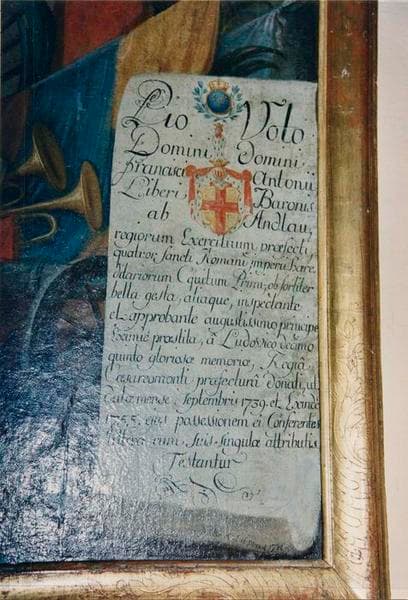 Pio Voto
Domini domini
francisci Antonii
Liberi Baronis
ab Andlau
regiorum Exercituum præfecti,
quatuor sancti Romani imperii hære
ditariorum Equitum Primi, ob fortiter
bella gesta, aliaque, inspectante
et approbante augustissimo principe
eximie præstita, â Ludovico decimo
quinto gloriosæ memoriæ, Regiâ
cæsareomonti præfecturâ donati, ut
Septembris 1739. et Exinde
1755. eius possessionem ei Conferentes
litteræ cum suis singulæ attributis
Testantur